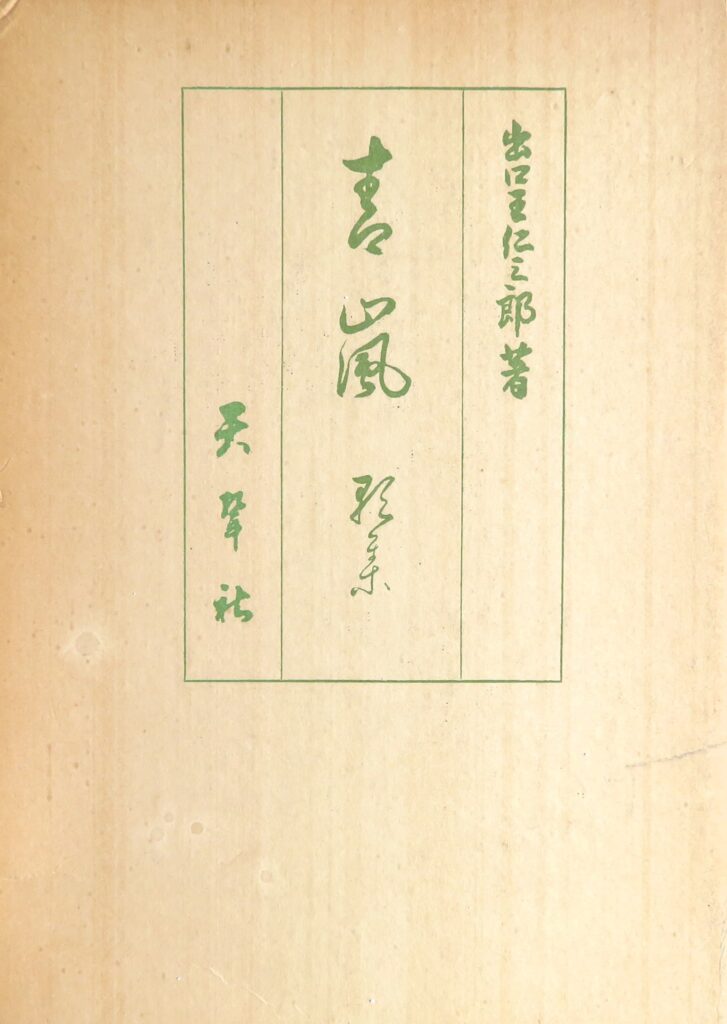 出口王仁三郎著
青嵐 歌集
天聲社